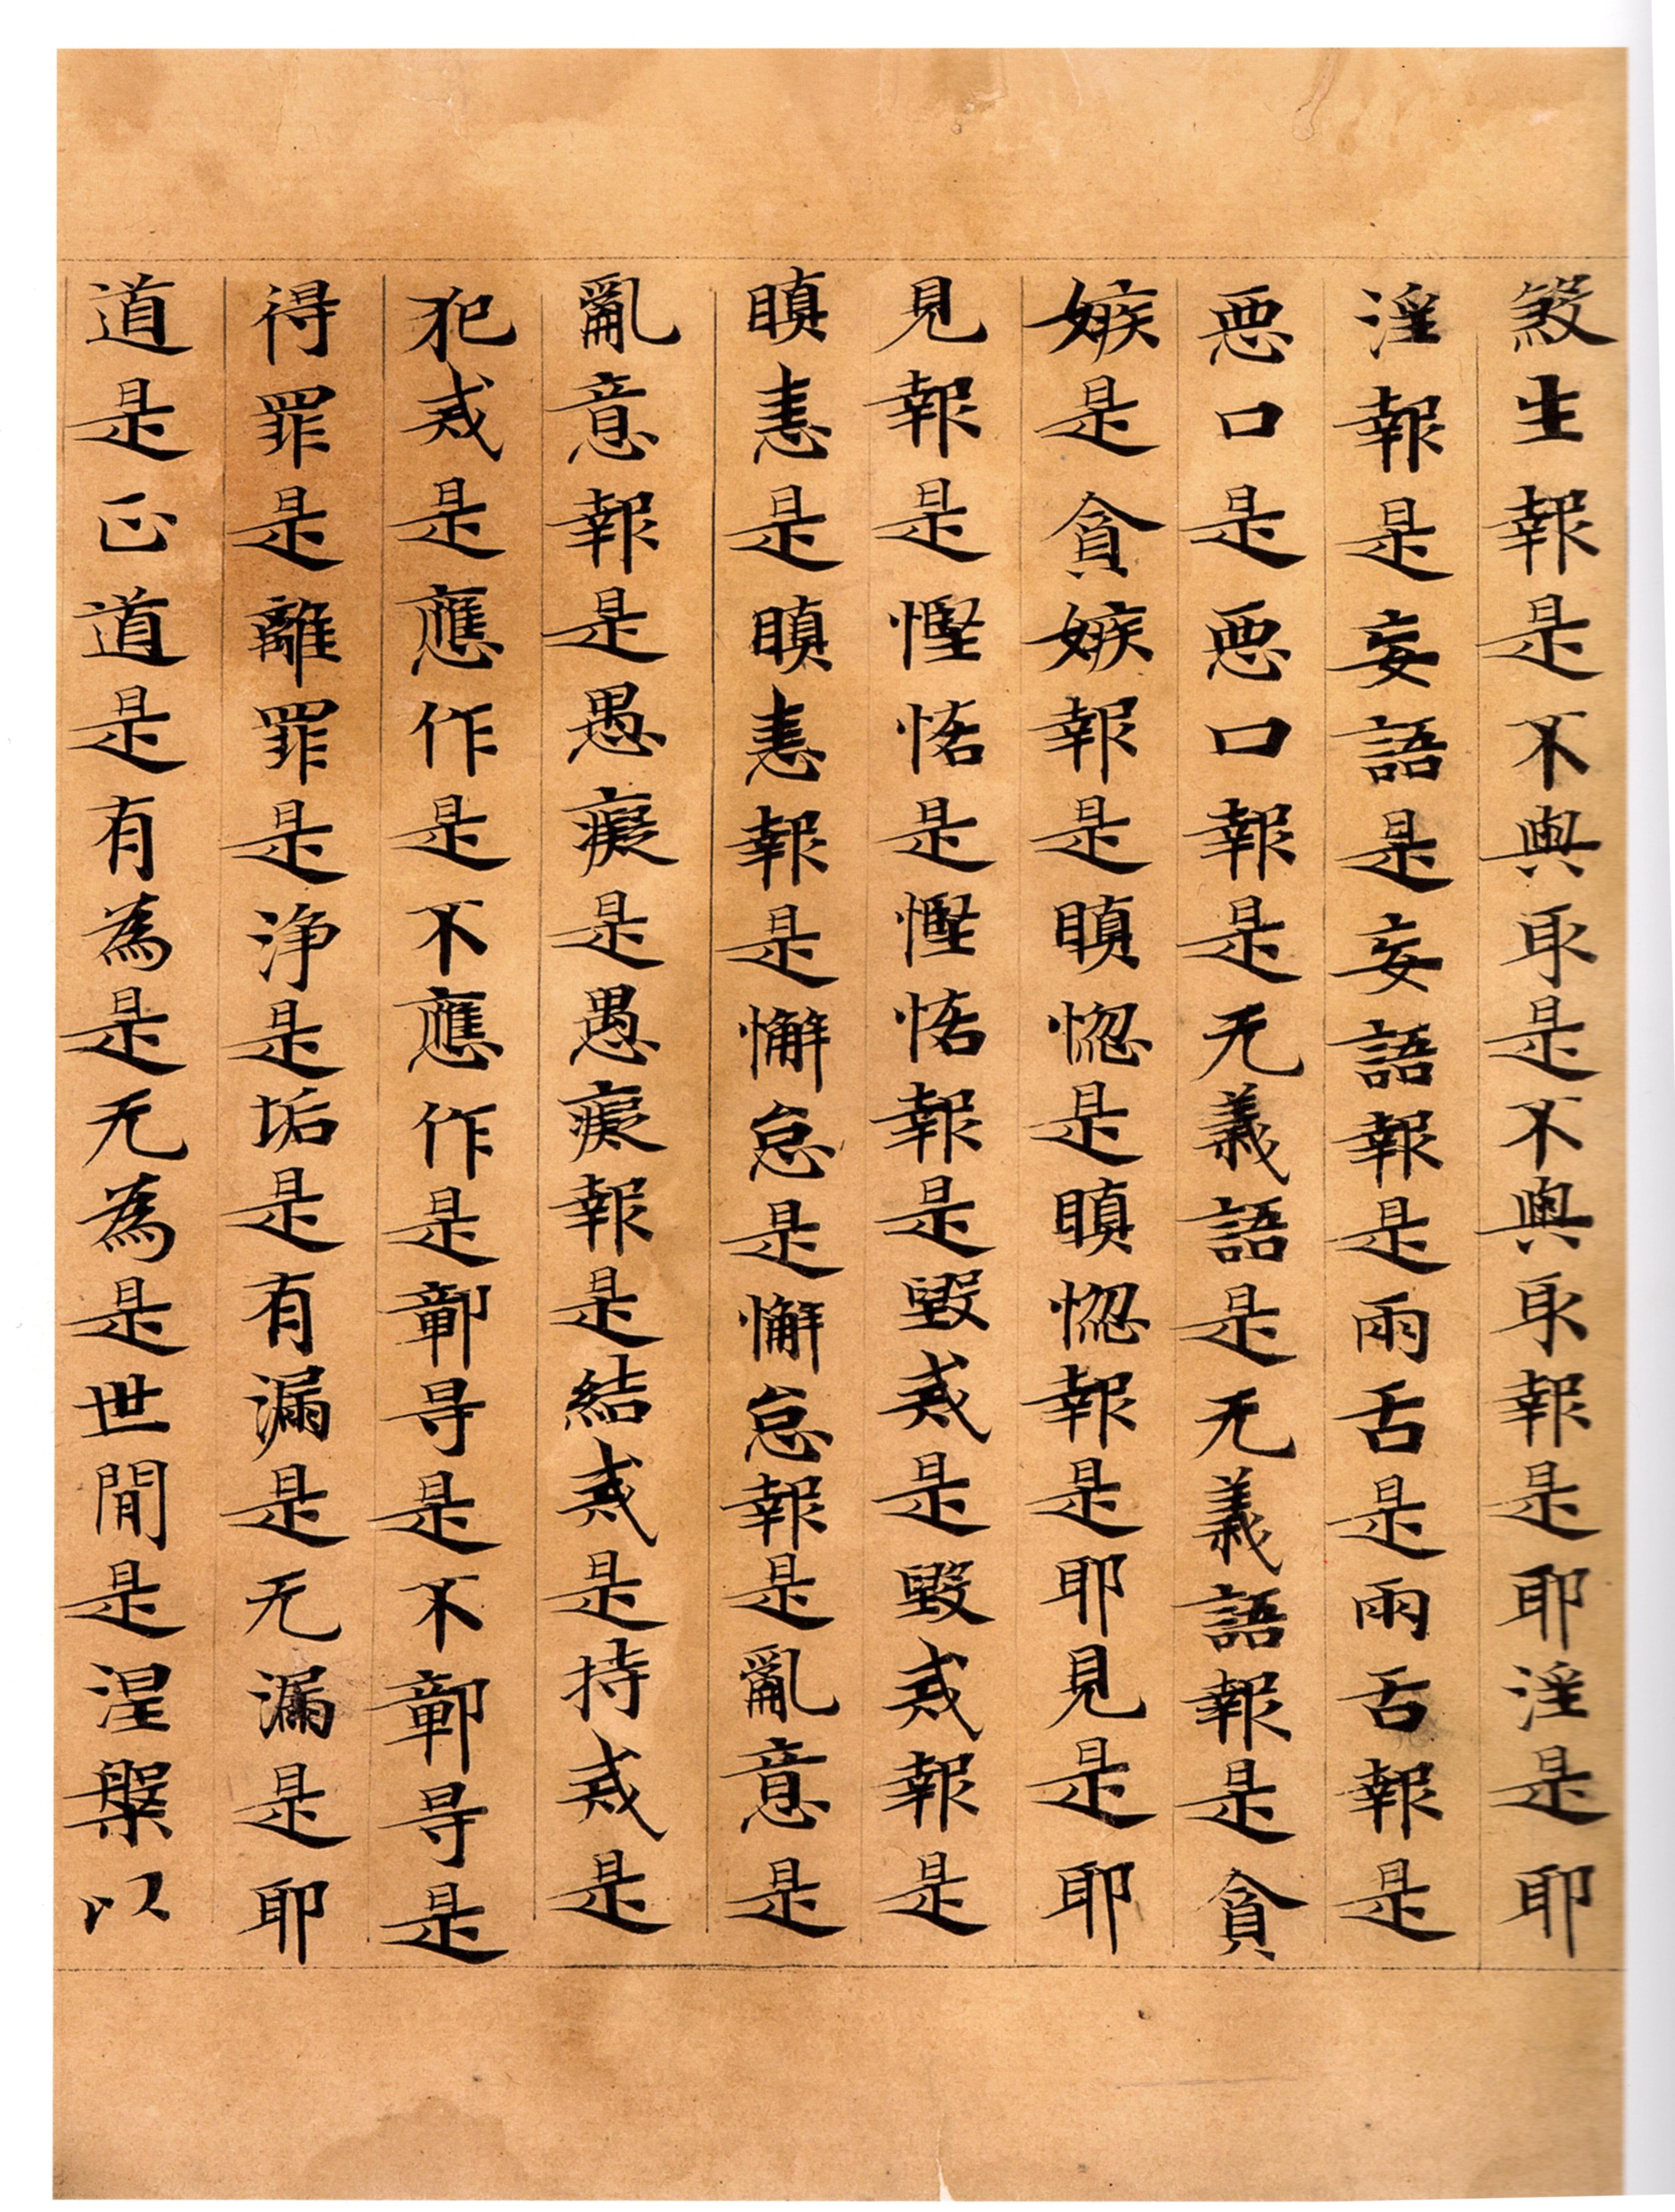 煞生報是不與取是不與取報是耶淫是耶
淫報是妄語是妄語報是兩舌是兩舌報是
惡口是惡口報是无義語是无義語報是貪
嫉是貪嫉報是瞋惱是瞋惱報是耶見是耶
見報是慳悋是慳悋報是毀戒是毀戒報是
瞋恚是瞋恚報是懈怠是懈怠報是亂意是
亂意報是愚癡是愚癡報是結戒是持戒是
犯戒是應作是不應作是鄣㝵是不鄣㝵是
得罪是離罪是淨是垢是有漏是无漏是耶
道是正道是有為是无為是世間是涅槃以